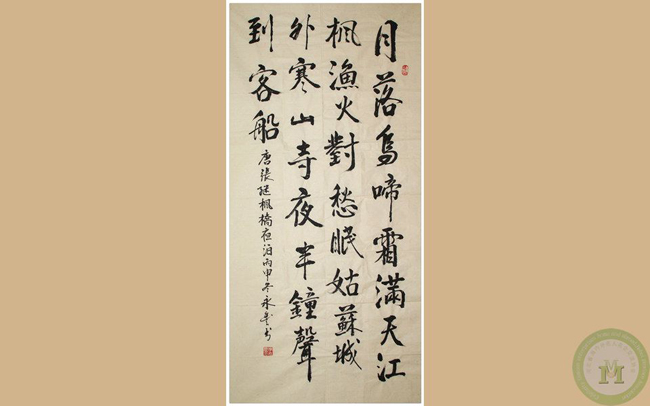 月落烏啼霜滿天江
楓漁火對愁眠姑蘇城
外寒山寺夜半鐘聲
到客船
唐張繼楓橋夜泊丙申冬永書